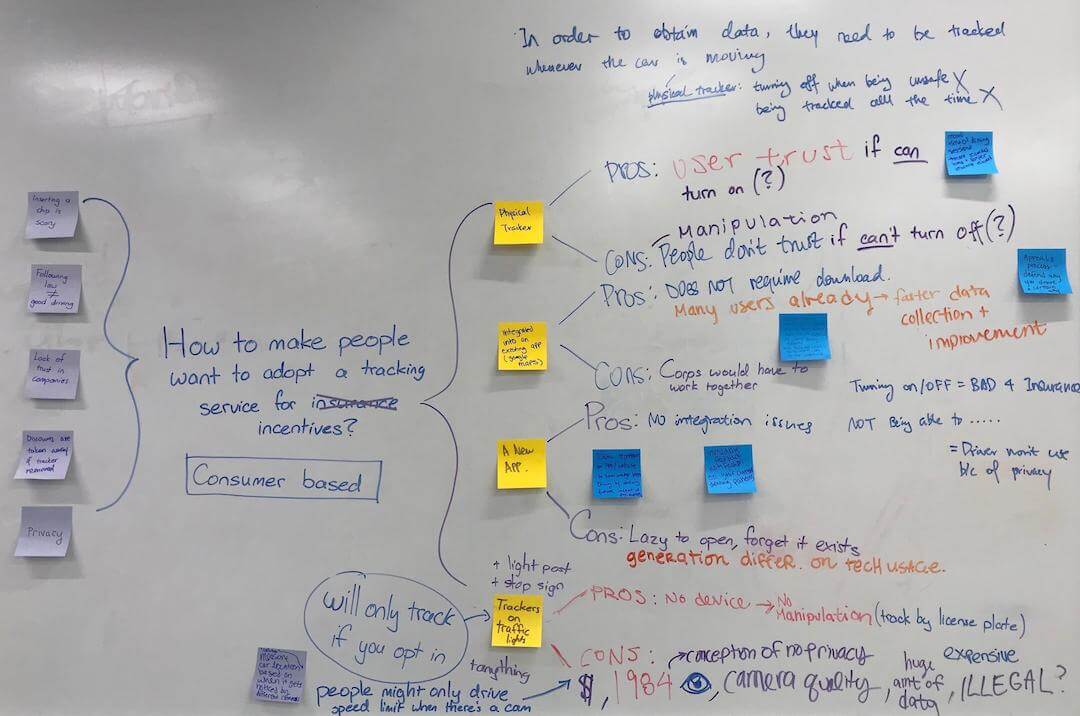 In order to obtain data, they need to be tracked
whenever the car is moving
physical tracker: turning off when being unsafe X
being tracked all the time X
Inserting a
chip is
scary
Following
law ≠
good driving
Lack of
trust in
companies
Discounts are
taken away
if tracker
removed
Privacy
How to make people
want to adopt a tracking
service for insurance
incentives?
Consumer based
Physical
Tracker
PROS: user trust if can
turn on (?)
Manipulation
CONS: People don't trust if can't turn off (?)
Integrated
into an
existing app
(google
maps)
Pros: DOES NOT require download.
Many users already → faster data
collection +
improvement
Appeals
process -
defend why
you drove
a certain
way
Cons: Corps would have to
work together
Turning on/OFF = BAD 4 Insurance
NOT Being able to ......
= Driver won't use
b/c of privacy
A New
App.
Pros: No integration issues
Cons: Lazy to open, forget it exists
generation differ. on TECH USAGE.
+ light post
+ stop sign
Trackers
on
traffic
lights
+anything
will only track
if you opt in
PROS: No device → No
Manipulation (track by license plate)
CONS: → conception of no privacy
$, 1984, camera quality, huge
amt of
data, expensive
, ILLEGAL?
people might only drive
speed limit when there's a cam
car location
based on
when it gets
noticed by
different cameras